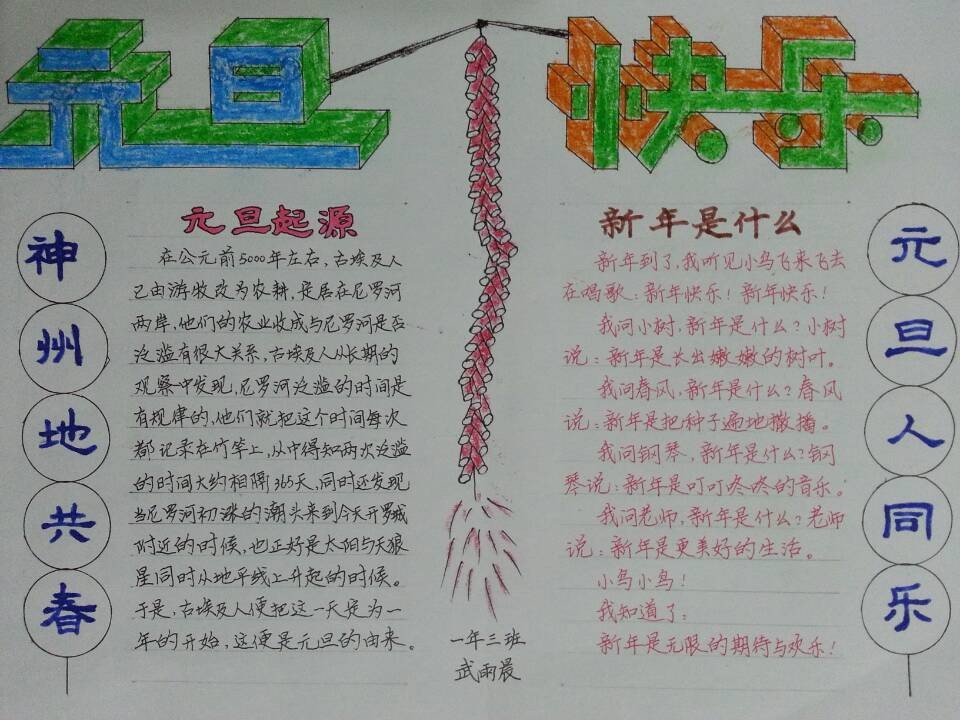 元旦 快乐
神州地共春
元旦起源
在公元前5000年左右，古埃及人
已由游牧改为农耕，定居在尼罗河
两岸，他们的农业收成与尼罗河是否
泛滥有很大关系，古埃及人从长期的
观察中发现，尼罗河泛滥的时间是
有规律的，他们就把这个时间每次
都记录在竹竿上，从中得知两次泛滥
的时间大约相隔365天，同时还发现
当尼罗河初涨的潮头来到今天开罗城
附近的时候，也正好是太阳与天狼
星同时从地平线上升起的时候。
于是，古埃及人便把这一天定为一
年的开始，这便是元旦的由来。
一年三班
武雨晨
新年是什么
新年到了，我听见小鸟飞来飞去
在唱歌：新年快乐！新年快乐！
我问小树，新年是什么？小树
说：新年是长出嫩嫩的树叶。
我问春风，新年是什么？春风
说：新年是把种子遍地撒播。
我问钢琴，新年是什么？钢
琴说：新年是叮叮咚咚的音乐。
我问老师，新年是什么？老师
说：新年是更美好的生活。
小鸟小鸟！
我知道了：
新年是无限的期待与欢乐！
元旦人同乐